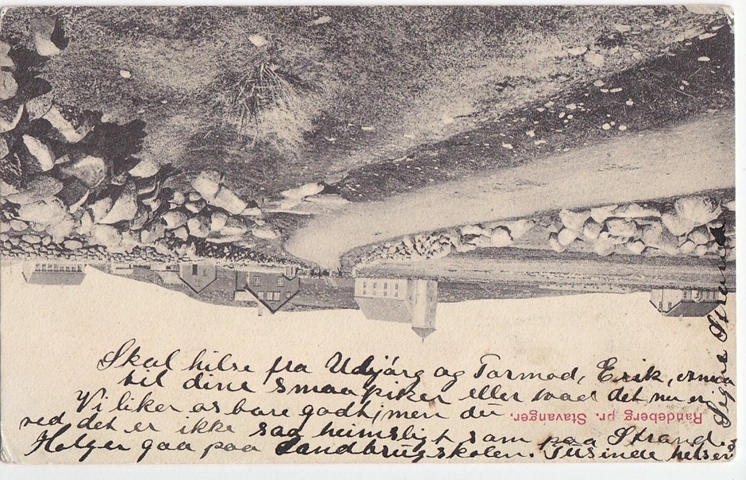 Skal hilse fra Udjörg og Tormod, Erik, osmaa
til dine smaapiker eller hvad det nu er
Vi liker os bare godt, men du
ved det er ikke saa heimsligt som paa Strand.
Holger gaa paa Landbrugskolen. Tusinde helsen
Signe Strand
Randeberg pr. Stavanger.